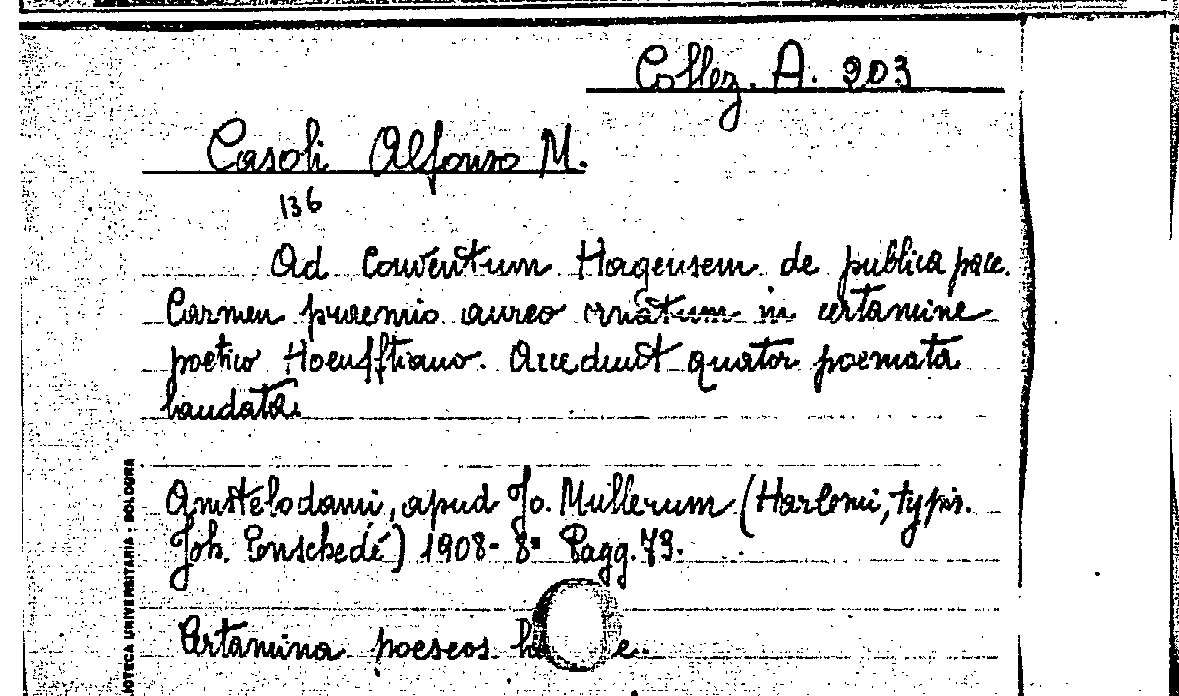 Collez. A. 903
Casoli Alfonso M.
136
Ad Conventum Hagensem de publica pace.
Carmen praemio aureo ornatum in certamine
poetico Hoeufftiano. Accedunt quator poemata
laudata.
Amstelodami, apud Jo. Mullerum (Harlemi, typis.
Joh. Enschedé) 1908 - 8° Pagg. 73.
Certamina poeseos
BIBLIOTECA UNIVERSITARIA - BOLOGNA